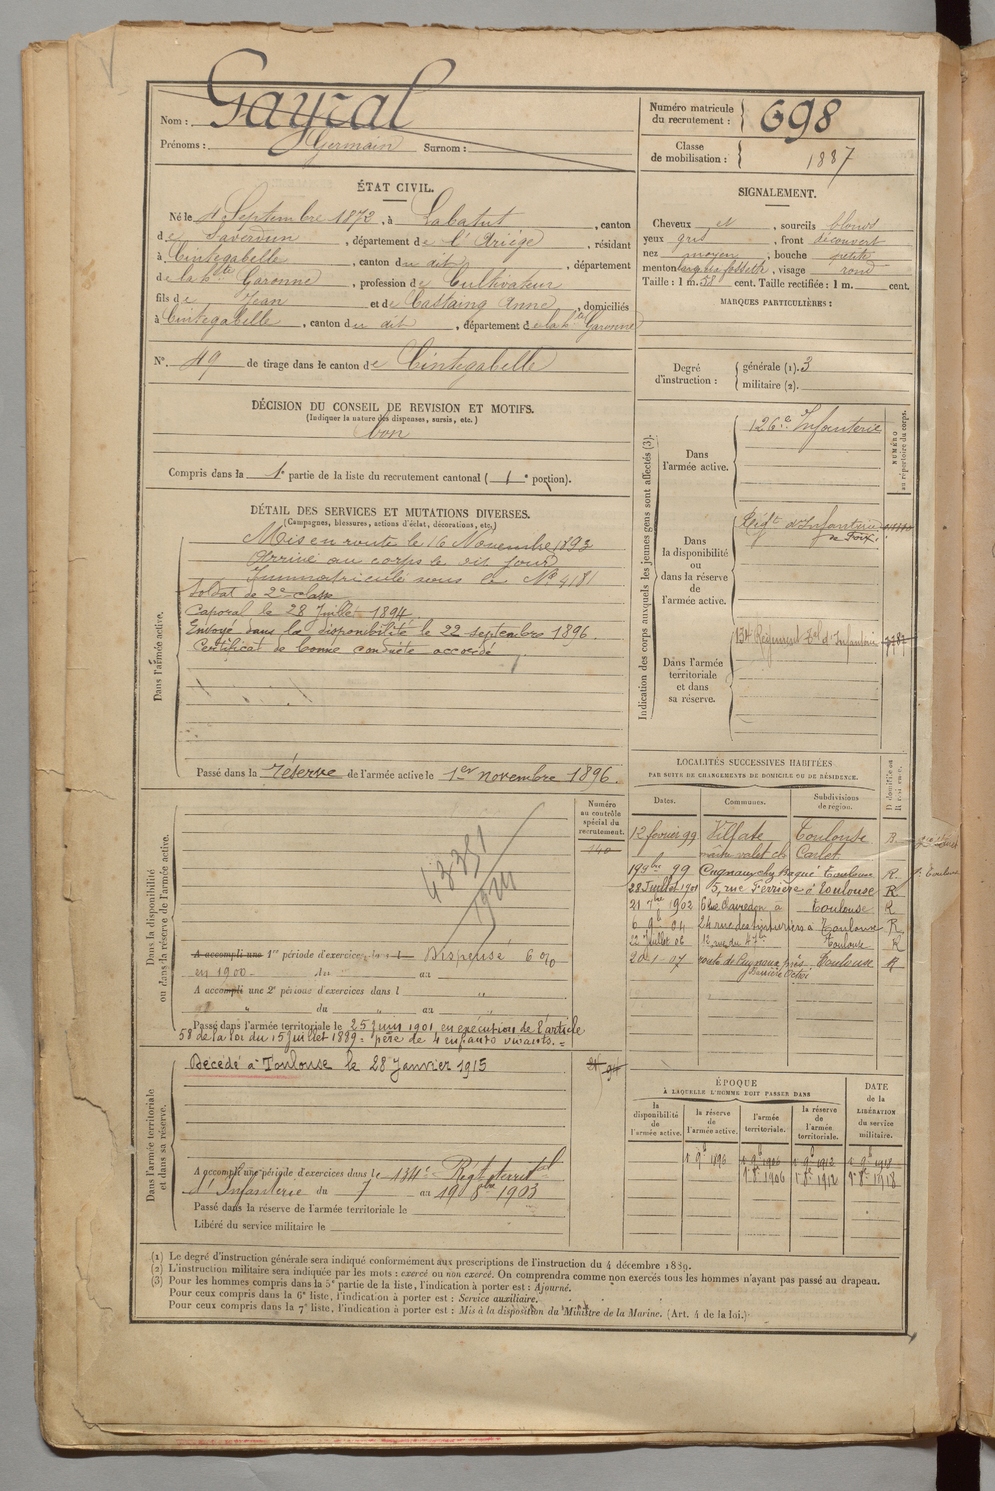 Nom : Gayral
Prénoms : Germain Surnom :
Numéro matricule du recrutement : 698
Classe de mobilisation : 1887
ÉTAT CIVIL.
Né le 4 Septembre 1872, à Labatut, canton
de Saverdun, département de l'Ariège, résidant
à Cintegabelle, canton du dit, département
de la hte Garonne, profession de Cultivateur
fils de Jean et de Castaing Anne, domiciliés
à Cintegabelle, canton du dit, département de la hte Garonne
SIGNALEMENT.
Cheveux et, sourcils blonds
yeux gris, front découvert
nez moyen, bouche petite
menton à fossette, visage rond
Taille : 1 m. 58 cent. Taille rectifiée : 1 m. cent.
MARQUES PARTICULIÈRES :
N° 49 de tirage dans le canton de Cintegabelle
Degré d'instruction : générale (1). 3
militaire (2).
DÉCISION DU CONSEIL DE REVISION ET MOTIFS.
(Indiquer la nature des dispenses, sursis, etc.)
bon
Compris dans la 1e partie de la liste du recrutement cantonal ( 1e portion).
Indication des corps auxquels les jeunes gens sont affectés (3).
NUMÉRO au répertoire du corps.
Dans l'armée active.
126e Infanterie
Dans la disponibilité ou dans la réserve de l'armée active.
Régt d'Infanterie
de Foix
Dans l'armée territoriale et dans sa réserve.
134 Régiment Tal d'Infanterie
DÉTAIL DES SERVICES ET MUTATIONS DIVERSES.
(Campagnes, blessures, actions d'éclat, décorations, etc.)
Dans l'armée active.
Mis en route le 16 Novembre 1893
Arrivé au corps le dit jour
Immatriculé sous le No 4181
Soldat de 2e classe
Caporal le 28 Juillet 1894
Envoyé dans la disponibilité le 22 septembre 1896.
Certificat de bonne conduite accordé
Passé dans la réserve de l'armée active le 1er novembre 1896.
Dans la disponibilité ou dans la réserve de l'armée active.
Numéro au contrôle spécial du recrutement.
A accompli une 1re période d'exercices Dispensé 6 0/0
en 1900 du au
A accompli une 2e période d'exercices dans l
du au
Passé dans l'armée territoriale le 25 Juin 1901, en exécution de l'article
58 de la loi du 15 Juillet 1889 = père de 4 enfants vivants. =
LOCALITÉS SUCCESSIVES HABITÉES
PAR SUITE DE CHANGEMENTS DE DOMICILE OU DE RÉSIDENCE.
Dates. Communes. Subdivisions de région. D domicile ou R résidence.
12 février 99 Vilfate Toulouse R
maître valet ch Carlet
19 9bre 99 Cugnaux chez Toulouse R
28 Juillet 1901 5, rue Ferrière à Toulouse R
21 7bre 1902 Claveden à Toulouse R
6 9b 04 24 rue des à Toulouse R
22 Juillet 06 12, rue du Toulouse R
20-1-07 route de Cugnaux près Toulouse R
Barrière Octroi
Dans l'armée territoriale et dans sa réserve.
Décédé à Toulouse le 28 Janvier 1915
A accompli une période d'exercices dans le 134e Régt territal
d'Infanterie du 7 au 19 8bre 1903
Passé dans la réserve de l'armée territoriale le
Libéré du service militaire le
ÉPOQUE
À LAQUELLE L'HOMME DOIT PASSER DANS
la disponibilité de l'armée active.
la réserve de l'armée active.
l'armée territoriale.
la réserve de l'armée territoriale.
DATE de la LIBÉRATION du service militaire.
1 9b 1896 1 9b 1906 1 9b 1912 1 9b 1918
1r 8b 1906 1r 8b 1912 1r 8b 1918
(1) Le degré d'instruction générale sera indiqué conformément aux prescriptions de l'instruction du 4 décembre 1889.
(2) L'instruction militaire sera indiquée par les mots : exercé ou non exercé. On comprendra comme non exercés tous les hommes n'ayant pas passé au drapeau.
(3) Pour les hommes compris dans la 5e partie de la liste, l'indication à porter est : Ajourné.
Pour ceux compris dans la 6e liste, l'indication à porter est : Service auxiliaire.
Pour ceux compris dans la 7e liste, l'indication à porter est : Mis à la disposition du Ministre de la Marine. (Art. 4 de la loi.)